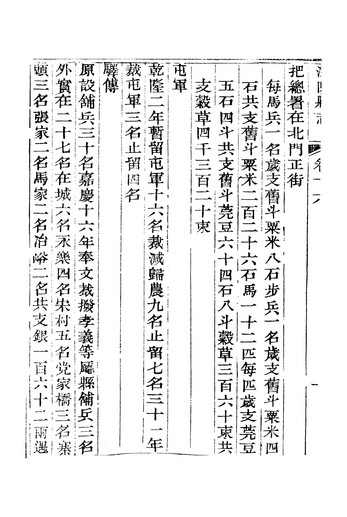 把總署在北門正街
每馬兵一名歲支舊斗粟米八石步兵一名歲支舊斗粟米四
石共支舊斗粟米二百二十六石馬一十二匹每匹歲支莞豆
五石四斗共支舊斗莞豆六十四石八斗穀草三百六十束共
支穀草四千三百二十束
屯軍
乾隆二年暫留屯軍十六名裁減歸農九名止留七名三十一年
裁屯軍三名止留四名
驛傳
原設舖兵三十名嘉慶十六年奉文裁撥孝義等廳縣舖兵三名
外實在二十七名在城六名永樂四名朱村五名党家橋三名寨
頭三名張家二名馬家二名冶峪二名共支銀一百六十二兩遇